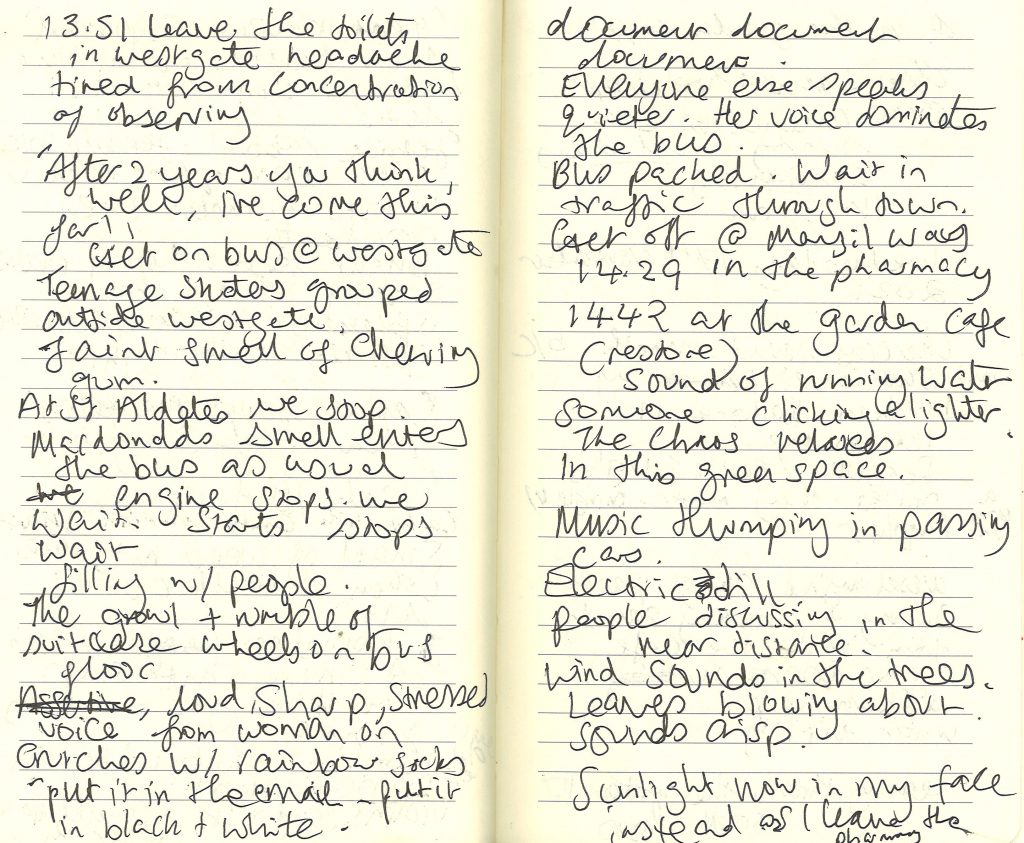 13.51 leave the toilets
in westgate headache
tired from concentration
of observing
"After 2 years you think,
well, I've come this
far"
Get on bus @ westgate
Teenage skaters grouped
outside westgate,
faint smell of chewing
gum.
At St Aldates we stop.
Macdonalds smell enters
the bus as usual
we engine stops. we
wait. starts stops
wait
filling w/ people.
The growl + rumble of
suitcase wheels on bus
flooc
Assertive, loud, sharp, stressed
voice from woman on
crutches w/ rainbow socks
"put it in the email - put it
in black + white.
document document
document.
Everyone else speaks
quieter. Her voice dominates
the bus.
Bus packed. Wait in
traffic through town.
Get off @ Manzil Ways
14.29 in the pharmacy
1442 at the garden cafe
(restore)
Sound of running water
someone clicking a lighter.
The chaos relaxes
In this green space.
Music thumping in passing
cars.
Electric drill
people discussing in the
near distance.
Wind sounds in the trees.
Leaves blowing about.
sounds crisp.
Sunlight now in my face
instead as I leave the
pharmacy